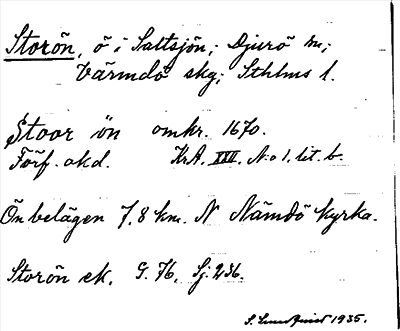 Storön, ö i Saltsjön; Djurö sn;
Värmdö skg; Sthlms l.
Stoor ön omkr. 1670.
Förf. okd. KrA. XXX. N:o 1. lit. b.
Ön belägen 7,8 km. N Nämdö kyrka.
Storön ek. G. 76, Sj. 236.
S. Lundqvist 1935.